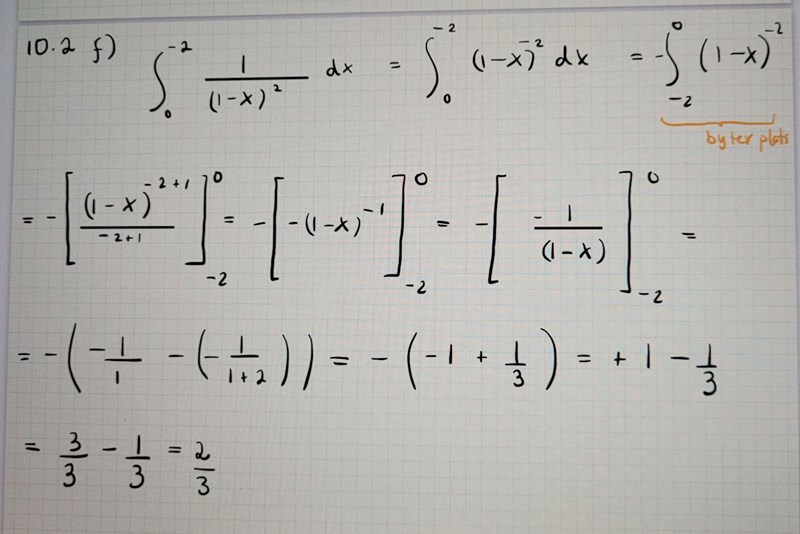 10.2 f) ∫₀⁻² 1/(1-x)² dx = ∫₀⁻² (1-x)⁻² dx = -∫₋₂⁰ (1-x)⁻²
byter plats
= -[(1-x)⁻²⁺¹/-2+1]₋₂⁰ = -[-(1-x)⁻¹]₋₂⁰ = -[-1/(1-x)]₋₂⁰ =
= -(-1/1 - (-1/1+2)) = -(-1 + 1/3) = +1 - 1/3
= 3/3 - 1/3 = 2/3